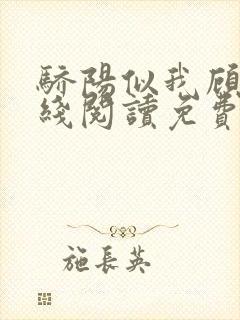 驕陽似我顧
綫閱讀免費
施長英